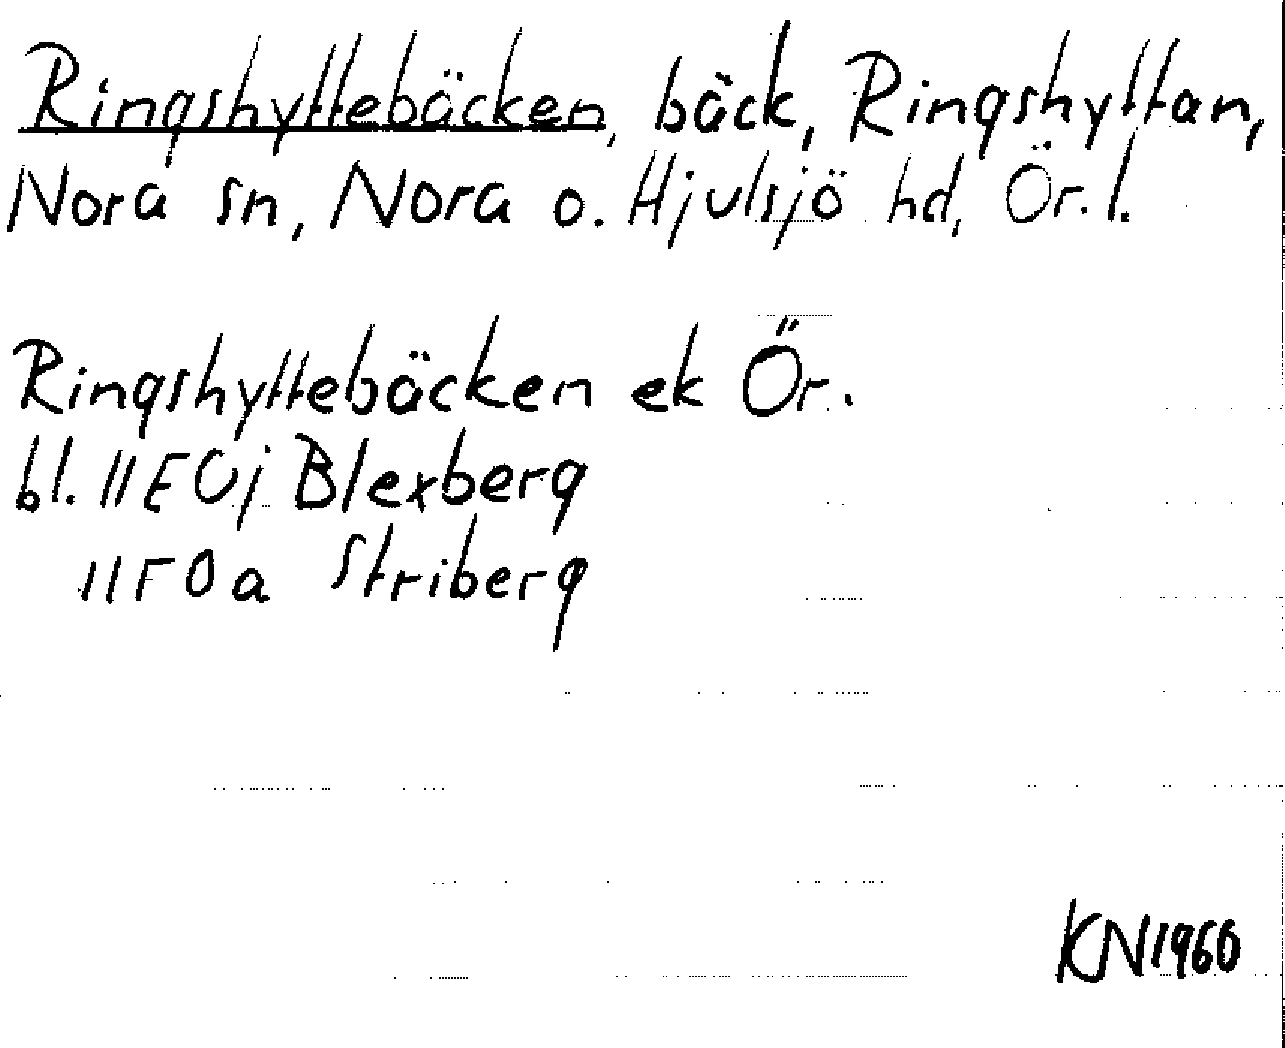 Ringshyttebäcken, bäck, Ringshyttan,
Nora sn, Nora o. Hjulsjö hd, Ör. l.
Ringshyttebäcken ek Ör.
bl. 11E0j Blexberg
11F0a Striberg
KN1960